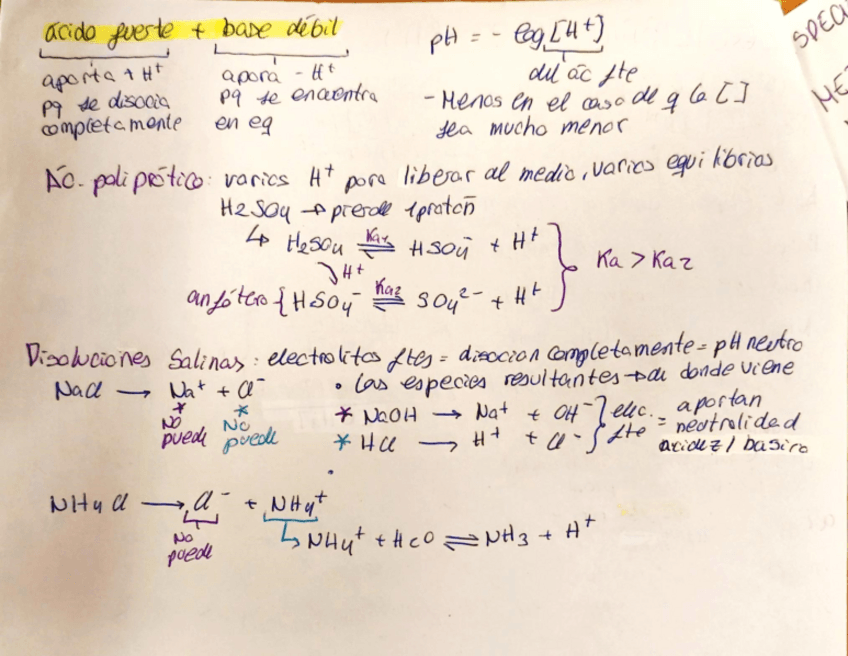 ácido fuerte + base débil
pH = - log [H+]
aporta + H+
pq se disocia
completamente
apora - H+
pq se encuentra
en eq
del ác fte
- Menos en el caso de q la []
sea mucho menor
SPECI
ME
Ác. poliprótico: varios H+ para liberar al medio, varios equilibrios
H2SO4 → pierde 1 protón
↳ H2SO4 ⇌ HSO4- + H+
Ka1
H+
Ka > Ka2
anfótero { HSO4- ⇌ SO4 2- + H+
Ka2
Disoluciones Salinas: electrolitos ftes = disocian completamente = pH neutro
NaCl → Na+ + Cl-
• Las especies resultantes → de donde viene
* No puede
* No puede
* NaOH → Na+ + OH-
* HCl → H+ + Cl-
elec. fte = aportan
neutralidad
acidez / basico
NH4Cl → Cl- + NH4+
No puede
↳ NH4+ + HCO ⇌ NH3 + H+